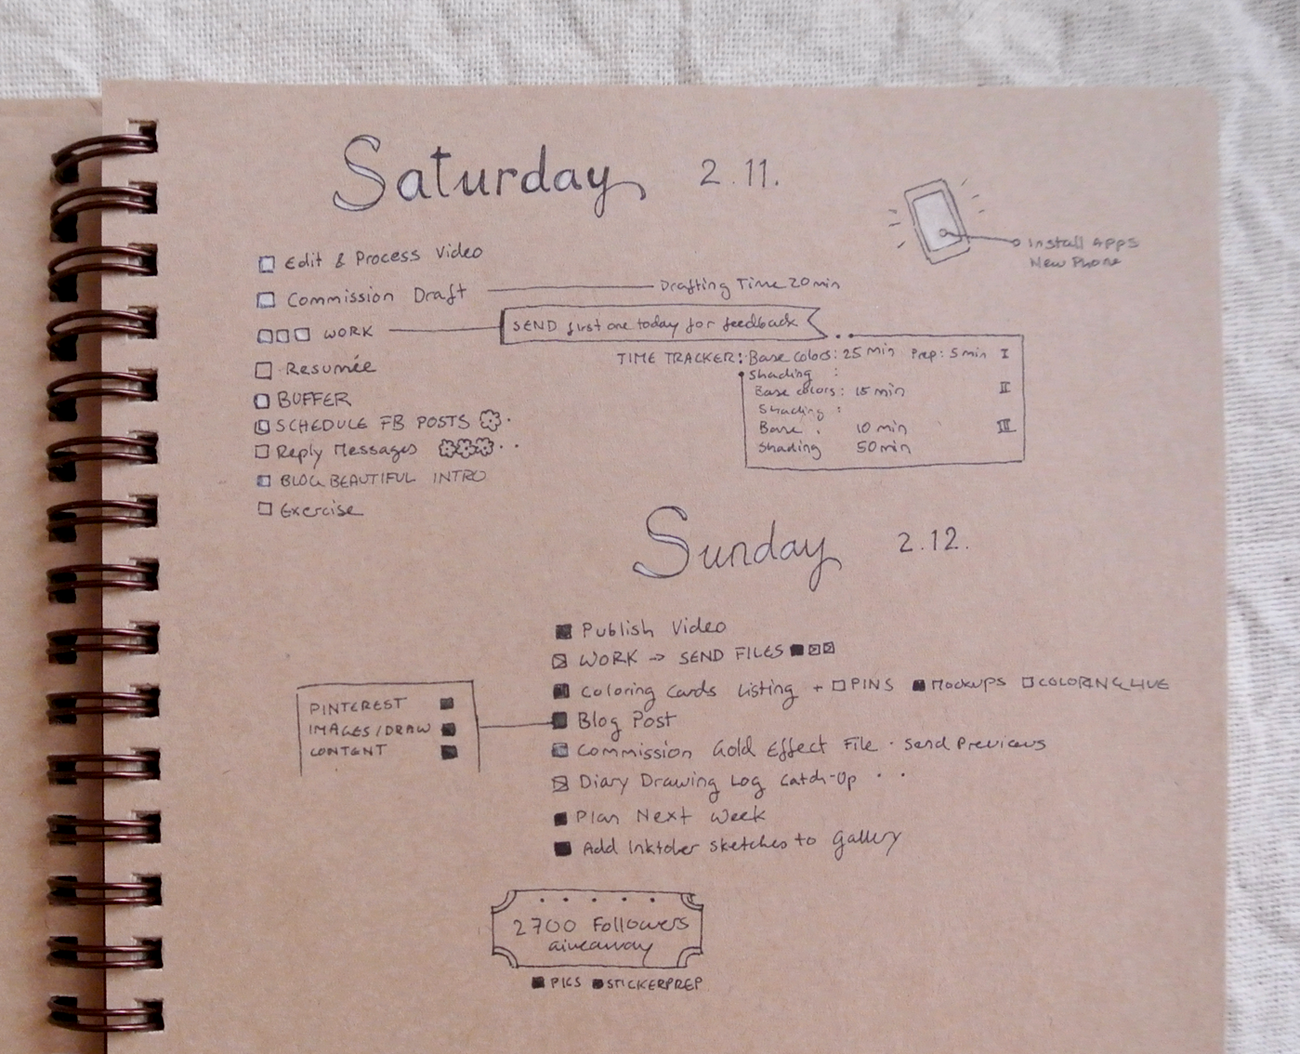 Saturday 2.11.
Install Apps
New Phone
Edit & Process Video
Commission Draft Drafting Time 20 min
WORK SEND first one today for feedback
TIME TRACKER: Base colors: 25 min Prep: 5 min I
Shading :
Base colors: 15 min II
Shading :
Base . 10 min III
Shading 50 min
Resumée
BUFFER
SCHEDULE FB POSTS
Reply Messages
BLOG BEAUTIFUL INTRO
Exercise
Sunday 2.12.
Publish Video
WORK → SEND FILES
Coloring Cards Listing + PINS Mockups COLORING LIVE
Blog Post
PINTEREST
IMAGES/DRAW
CONTENT
Commission Gold Effect File · Send Previews
Diary Drawing Log Catch-Up · ·
Plan Next Week
Add Inktober sketches to Gallery
2700 Followers
Giveaway
PICS STICKERPREP